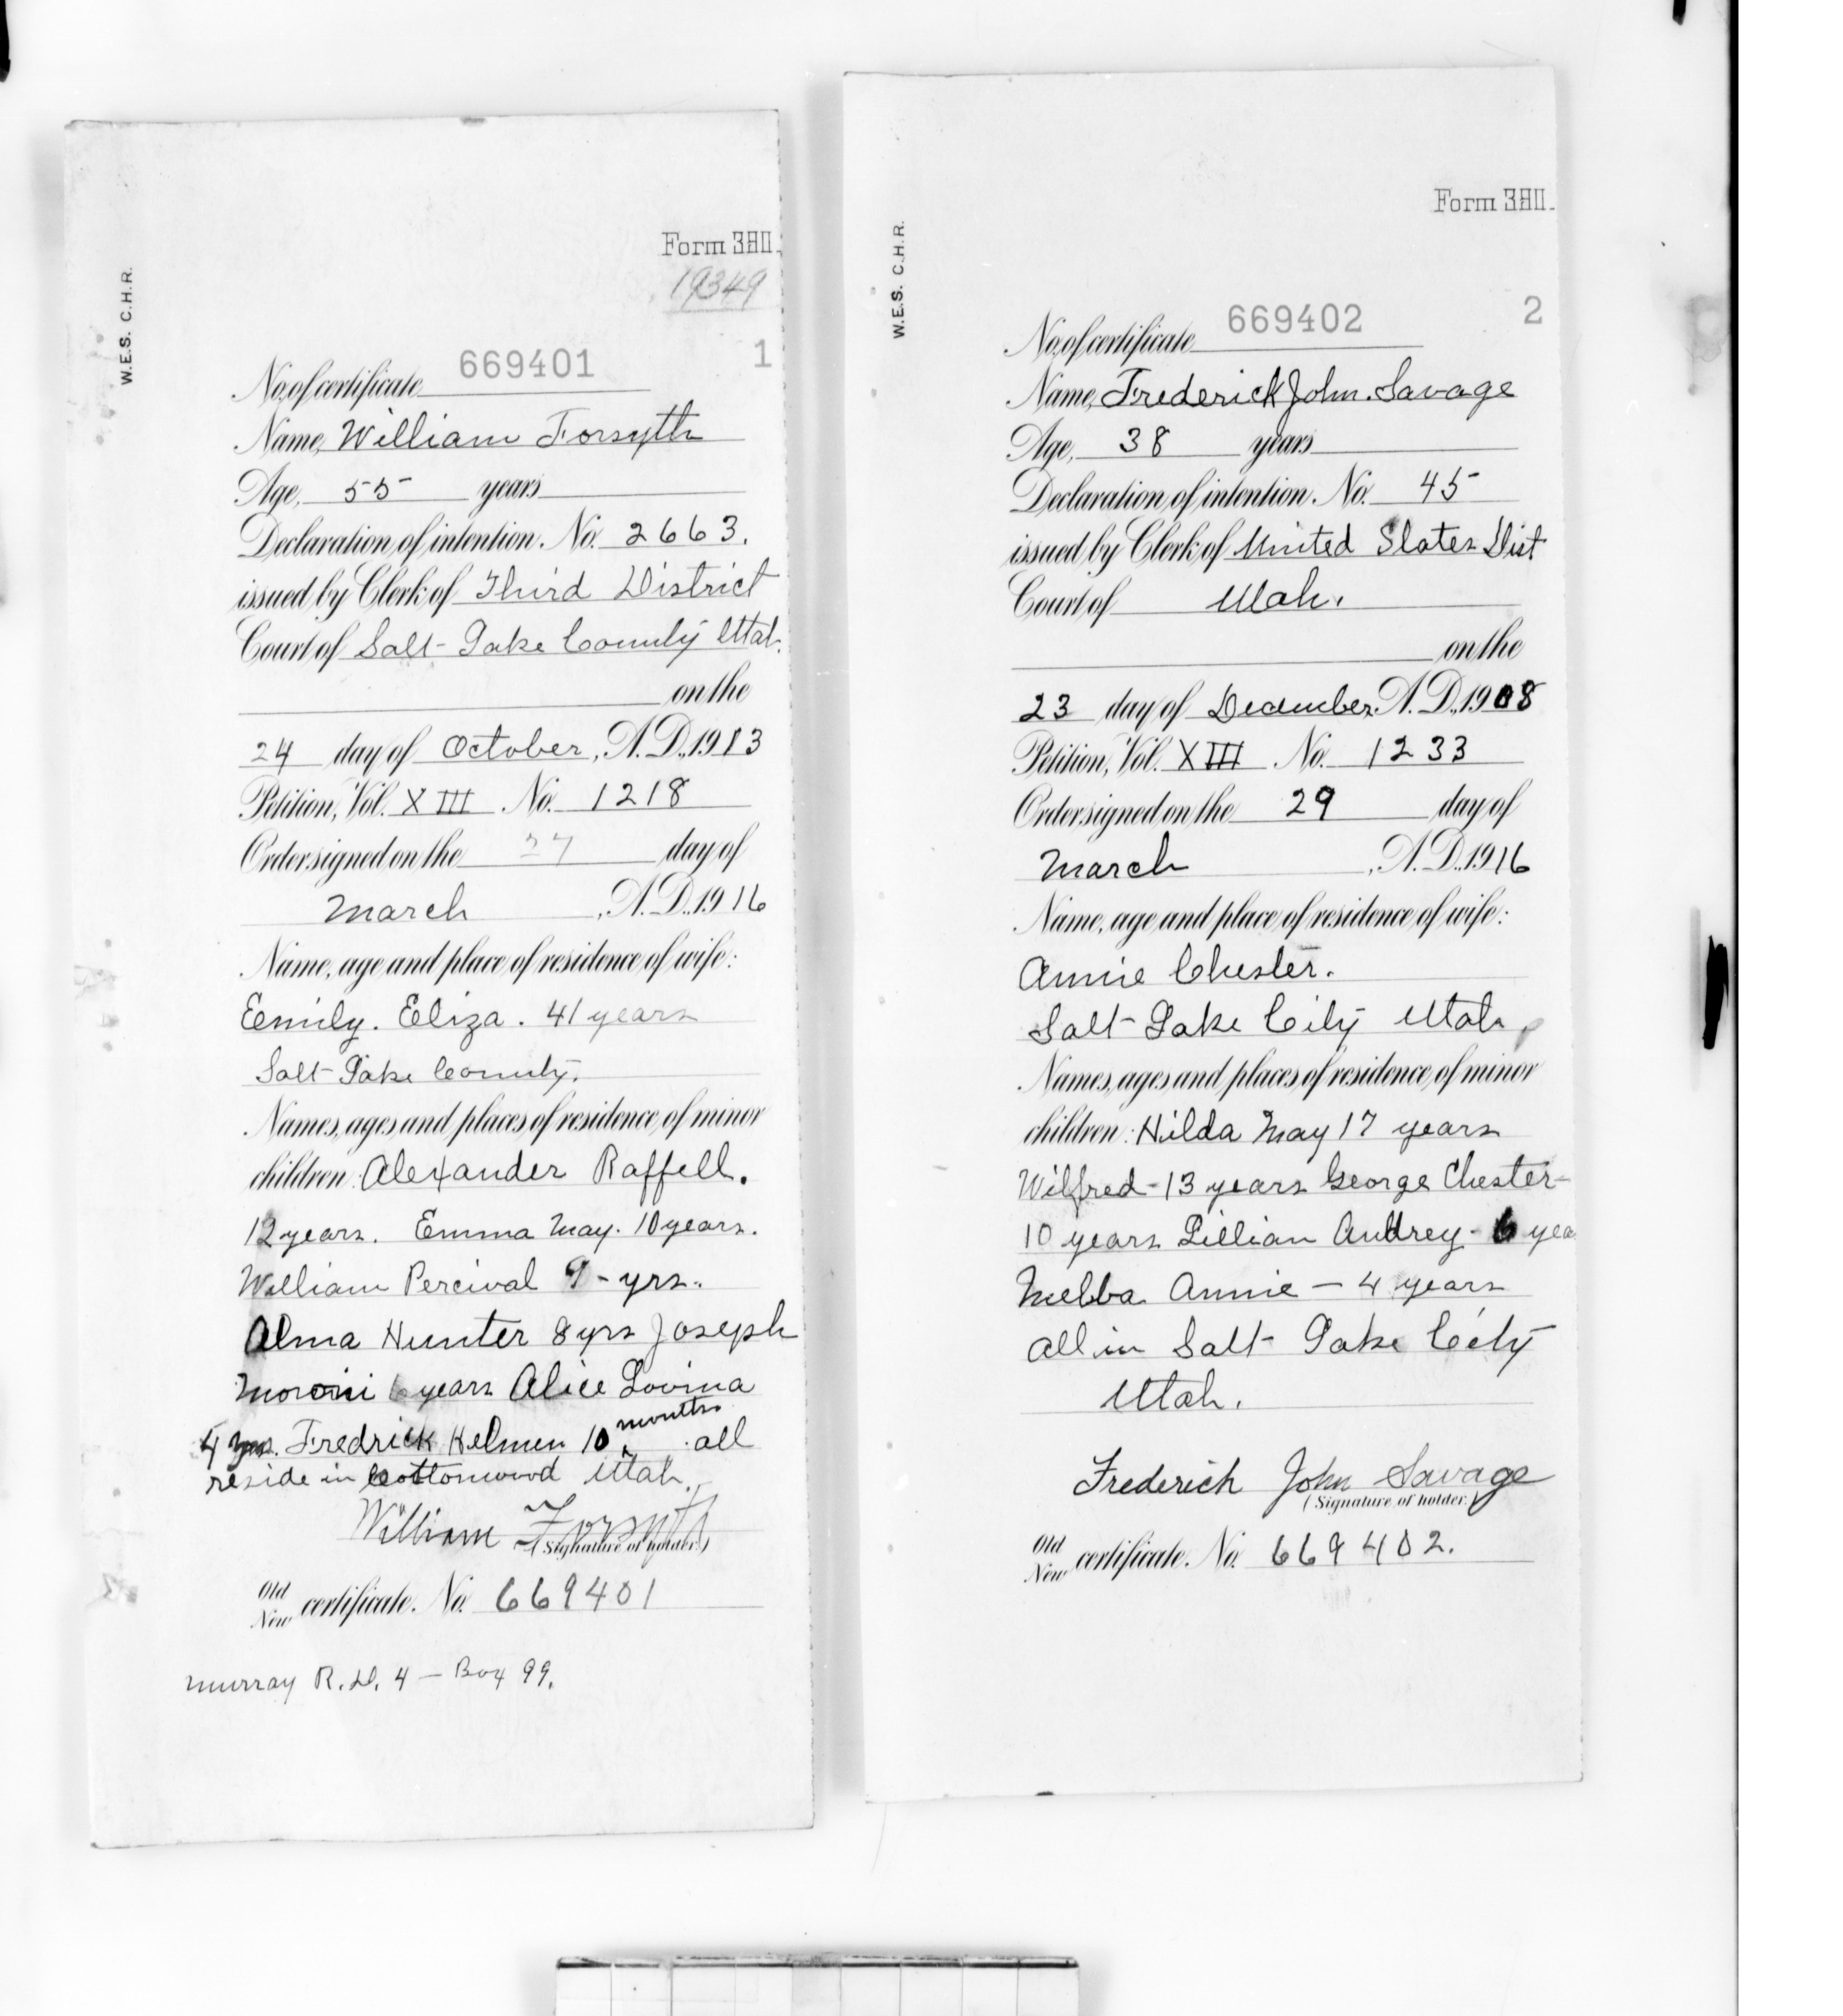 W.E.S. C.H.R.
Form 380.
19349
No. of certificate 669401 1
Name, William Forsyth
Age, 55 years
Declaration of intention. No. 2663.
issued by Clerk of Third District
Court of Salt Lake County Utah.
on the
24 day of October, A.D. 1913
Petition, Vol. XIII No. 1218
Order signed on the 27 day of
March, A.D. 1916
Name, age and place of residence of wife:
Emily. Eliza. 41 years
Salt Lake County.
Names, ages and places of residence of minor
children: Alexander Raffell.
12 years. Emma May. 10 years.
William Percival 9 - yrs.
Alma Hunter 8 yrs Joseph
Moroni 6 years Alice Lovina
months
4 yrs. Fredrick Helmen 10 all
reside in Cottonwood Utah.
William Forsyth
(Signature of holder.)
Old
New certificate. No. 669401
Murray R.D. 4 — Box 99.
W.E.S. C.H.R.
Form 380.
No. of certificate 669402 2
Name, Frederick John. Savage
Age, 38 years
Declaration of intention. No. 45
issued by Clerk of United States Dist
Court of Utah.
on the
23 day of December. A.D. 1908
Petition, Vol. XIII. No. 1233
Order signed on the 29 day of
March, A.D. 1916
Name, age and place of residence of wife:
Annie Chester.
Salt Lake City Utah
Names, ages and places of residence of minor
children: Hilda May 17 years
Wilfred - 13 years George Chester -
10 years Lillian Audrey - 6 yea
Melba Annie — 4 years
all in Salt Lake City
Utah.
Frederick John Savage
(Signature of holder.)
Old
New certificate. No. 669402.